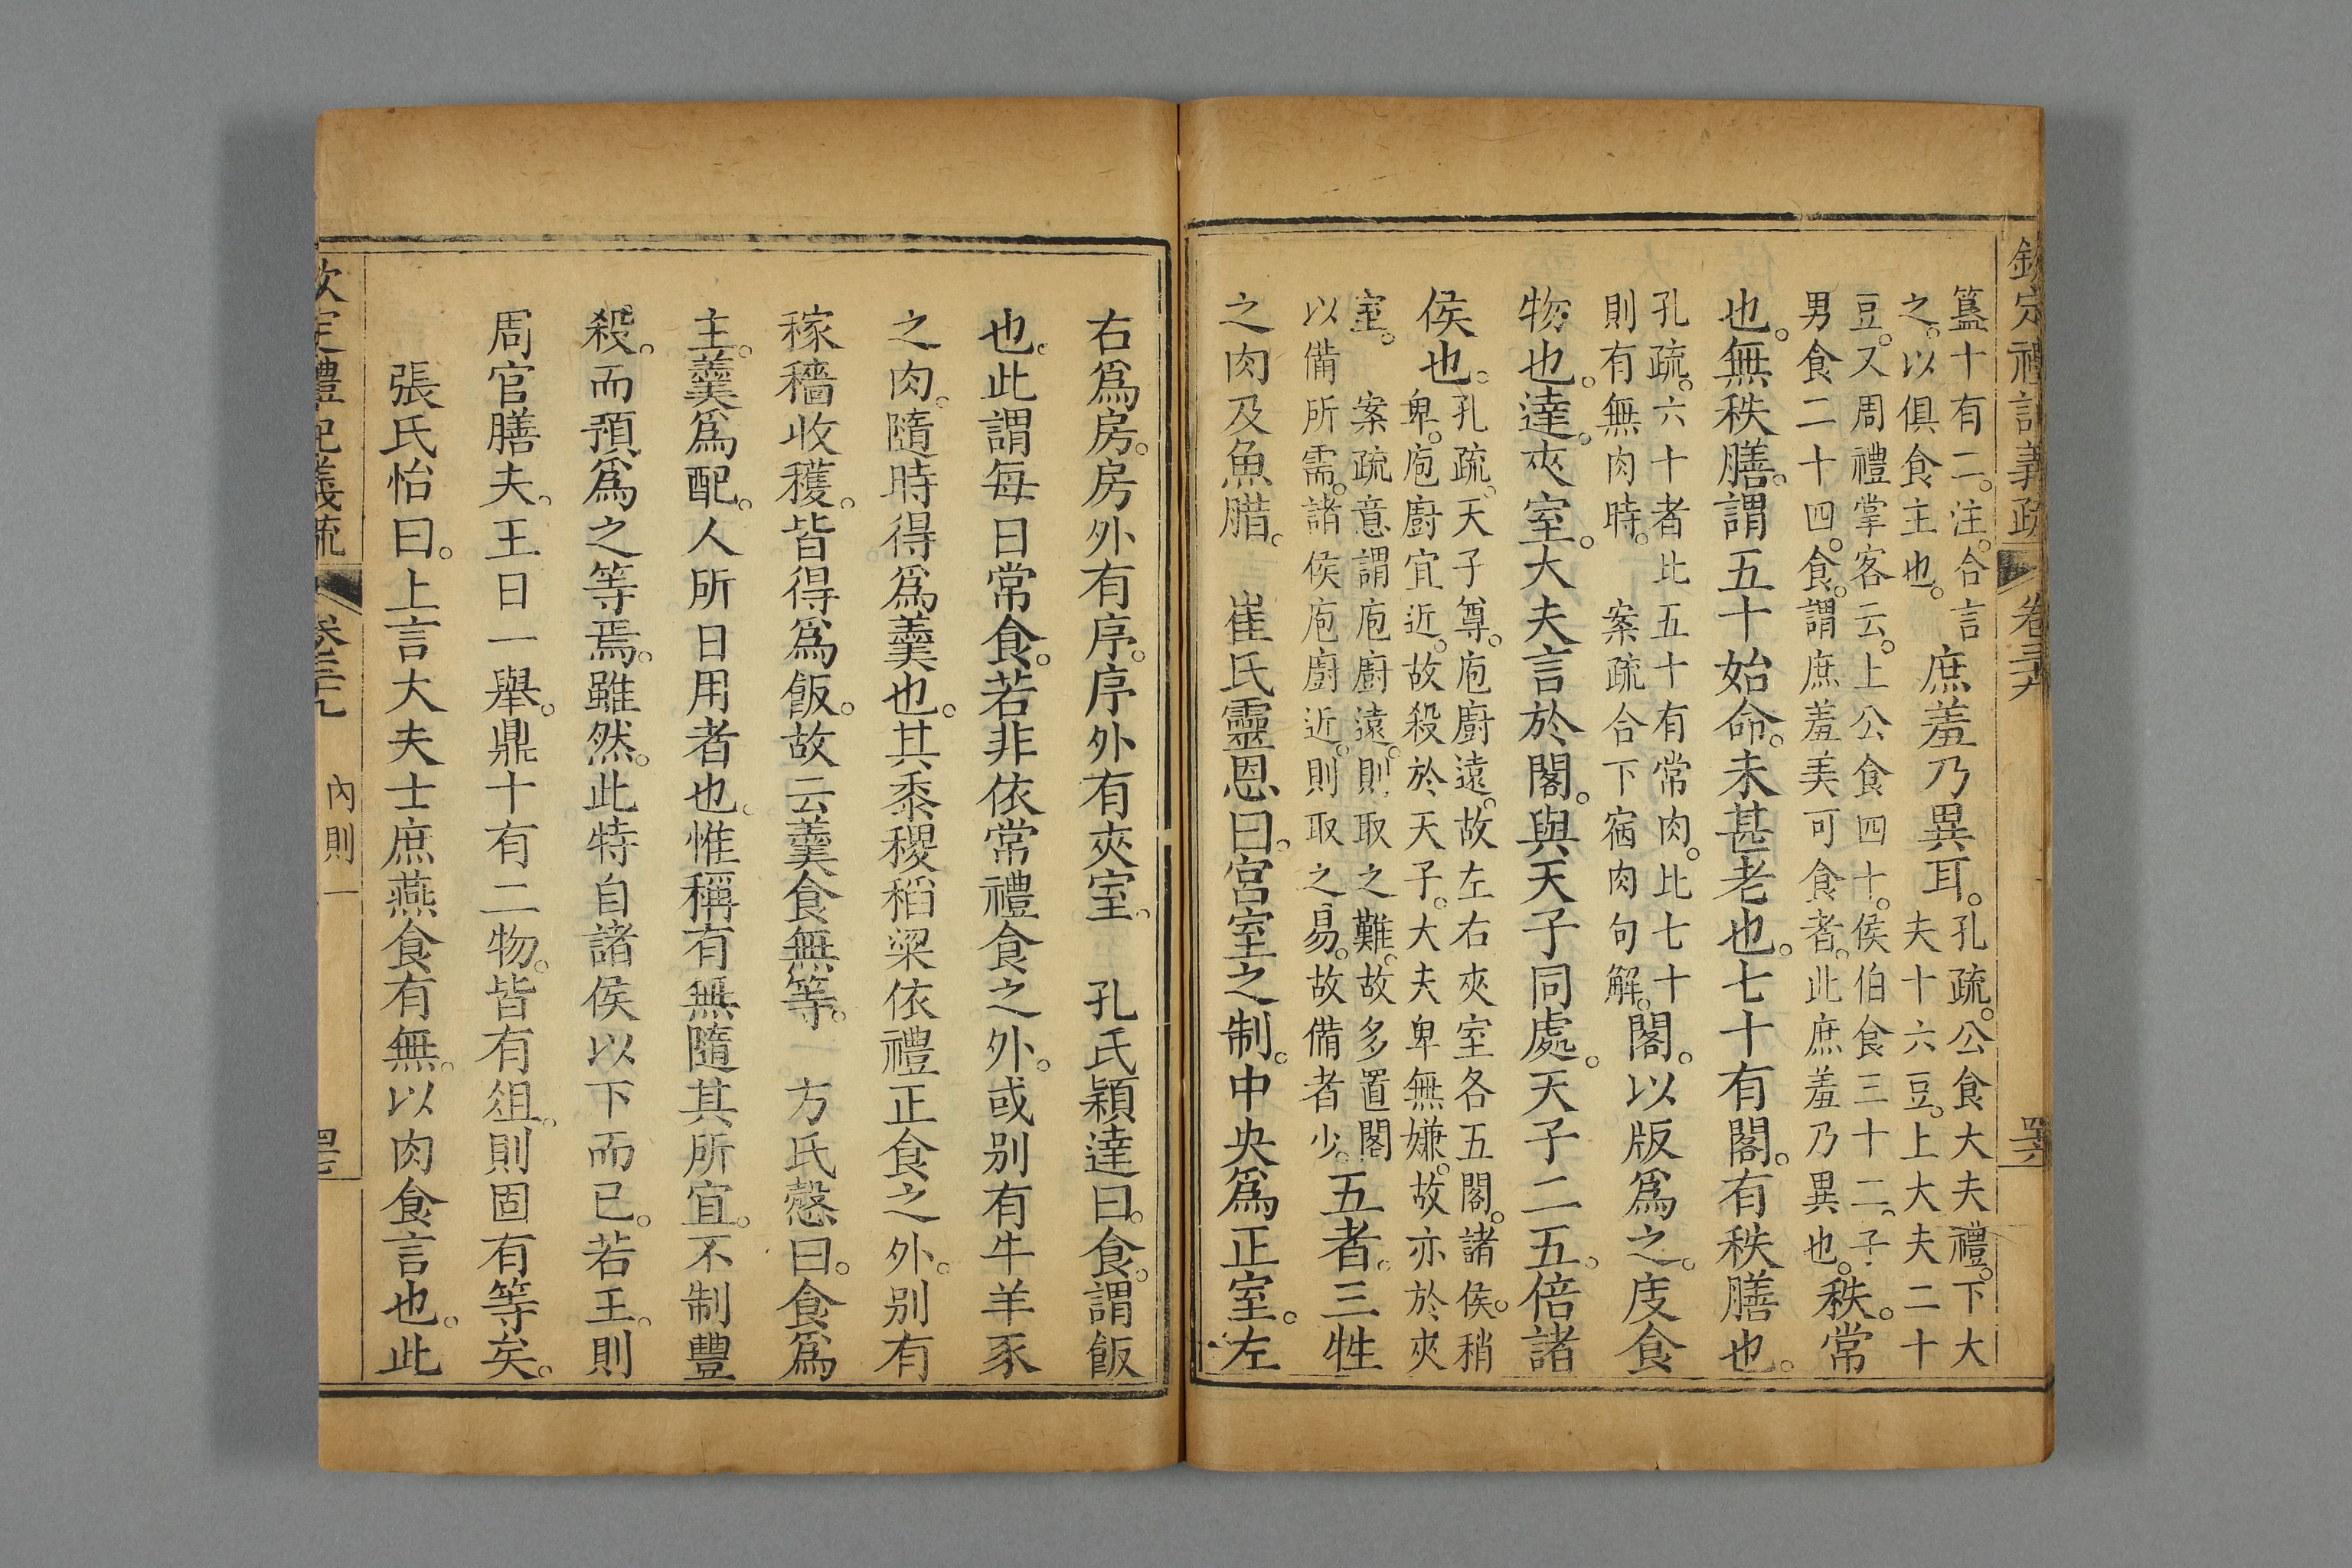 欽定禮記義疏 卷三十九 罢
簋十有二。注。合言
之。以俱食主也。
庶羞乃異耳。
孔疏。公食大夫禮。下大
夫十六豆。上大夫二十
豆。又周禮掌客云。上公食四十。侯伯食三十二。子
男食二十四。食。謂庶羞美可食者。此庶羞乃異也。
秩。常
也。無秩膳。謂五十始命。未甚老也。七十有閣。有秩膳也。
孔疏。六十者比五十有常肉。比七十
則有無肉時。 案疏合下宿肉句解。
閣。以版爲之。庋食
物也。達。夾室。大夫言於閣。與天子同處。天子二五。倍諸
侯也。
孔疏。天子尊。庖廚遠。故左右夾室各五閣。諸侯稍
卑。庖廚宜近。故殺於天子。大夫卑無嫌。故亦於夾
室。 案疏意謂庖廚遠。則取之難。故多置閣
以備所需。諸侯庖廚近。則取之易。故備者少。
五者。三牲
之肉及魚腊。 崔氏靈恩曰。宮室之制。中央爲正室。左
右爲房。房外有序。序外有夾室。 孔氏穎達曰。食。謂飯
也。此謂每日常食。若非依常禮食之外。或别有牛羊豕
之肉。隨時得爲羹也。其黍稷稻粱依禮正食之外。别有
稼穡收穫。皆得爲飯。故云羹食無等。 方氏慤曰。食爲
主。羹爲配。人所日用者也。惟稱有無隨其所宜。不制豐
殺。而預爲之等焉。雖然。此特自諸侯以下而已。若王。則
周官膳夫。王日一舉。鼎十有二物。皆有俎。則固有等矣。
張氏怡曰。上言大夫士庶燕食有無。以肉食言也。此
欽定禮記義疏 卷三十九 內則一